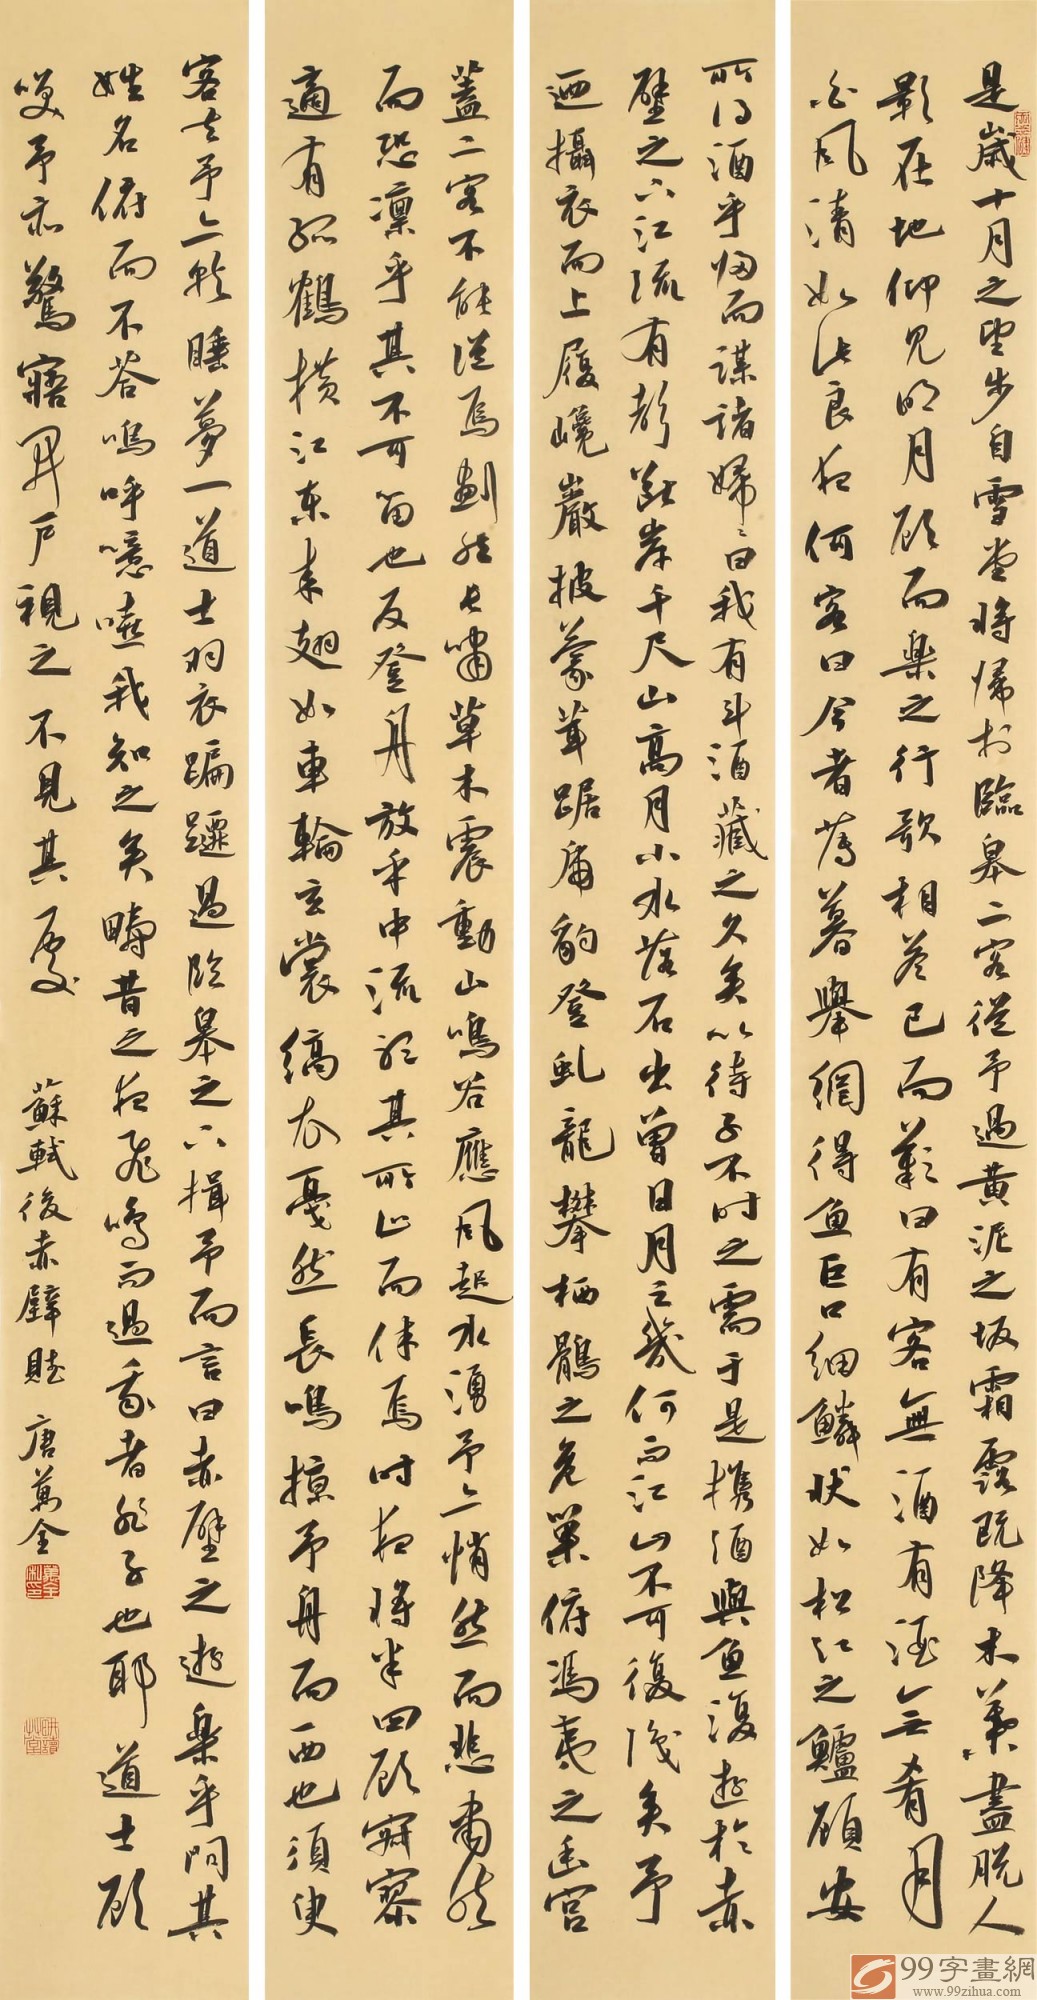 是歲十月之望步自雪堂將歸於臨皋二客從予過黃泥之坂霜露既降木葉盡脫人
影在地仰見明月顧而樂之行歌相答已而歎曰有客無酒有酒無肴月
白風清如此良夜何客曰今者薄暮舉網得魚巨口細鱗狀如松江之鱸顧安
所得酒乎歸而謀諸婦婦曰我有斗酒藏之久矣以待子不時之需于是攜酒與魚復遊於赤
壁之下江流有聲斷岸千尺山高月小水落石出曾日月之幾何而江山不可復識矣予
迺攝衣而上履巉巖披蒙茸踞虎豹登虬龍攀栖鶻之危巢俯馮夷之幽宮
蓋二客不能從焉劃然長嘯草木震動山鳴谷應風起水湧予亦悄然而悲肅然
而恐凜乎其不可留也反登舟放乎中流聽其所止而休焉時夜將半四顧寂寥
適有孤鶴橫江東來翅如車輪玄裳縞衣戛然長鳴掠予舟而西也須臾
客去予亦就睡夢一道士羽衣蹁躚過臨皋之下揖予而言曰赤壁之遊樂乎問其
姓名俯而不答嗚呼噫嘻我知之矣疇昔之夜飛鳴而過我者非子也耶道士顧
笑予亦驚寤開戶視之不見其處
蘇軾後赤壁賦 唐萬全
99字畫網
www.99zihua.com